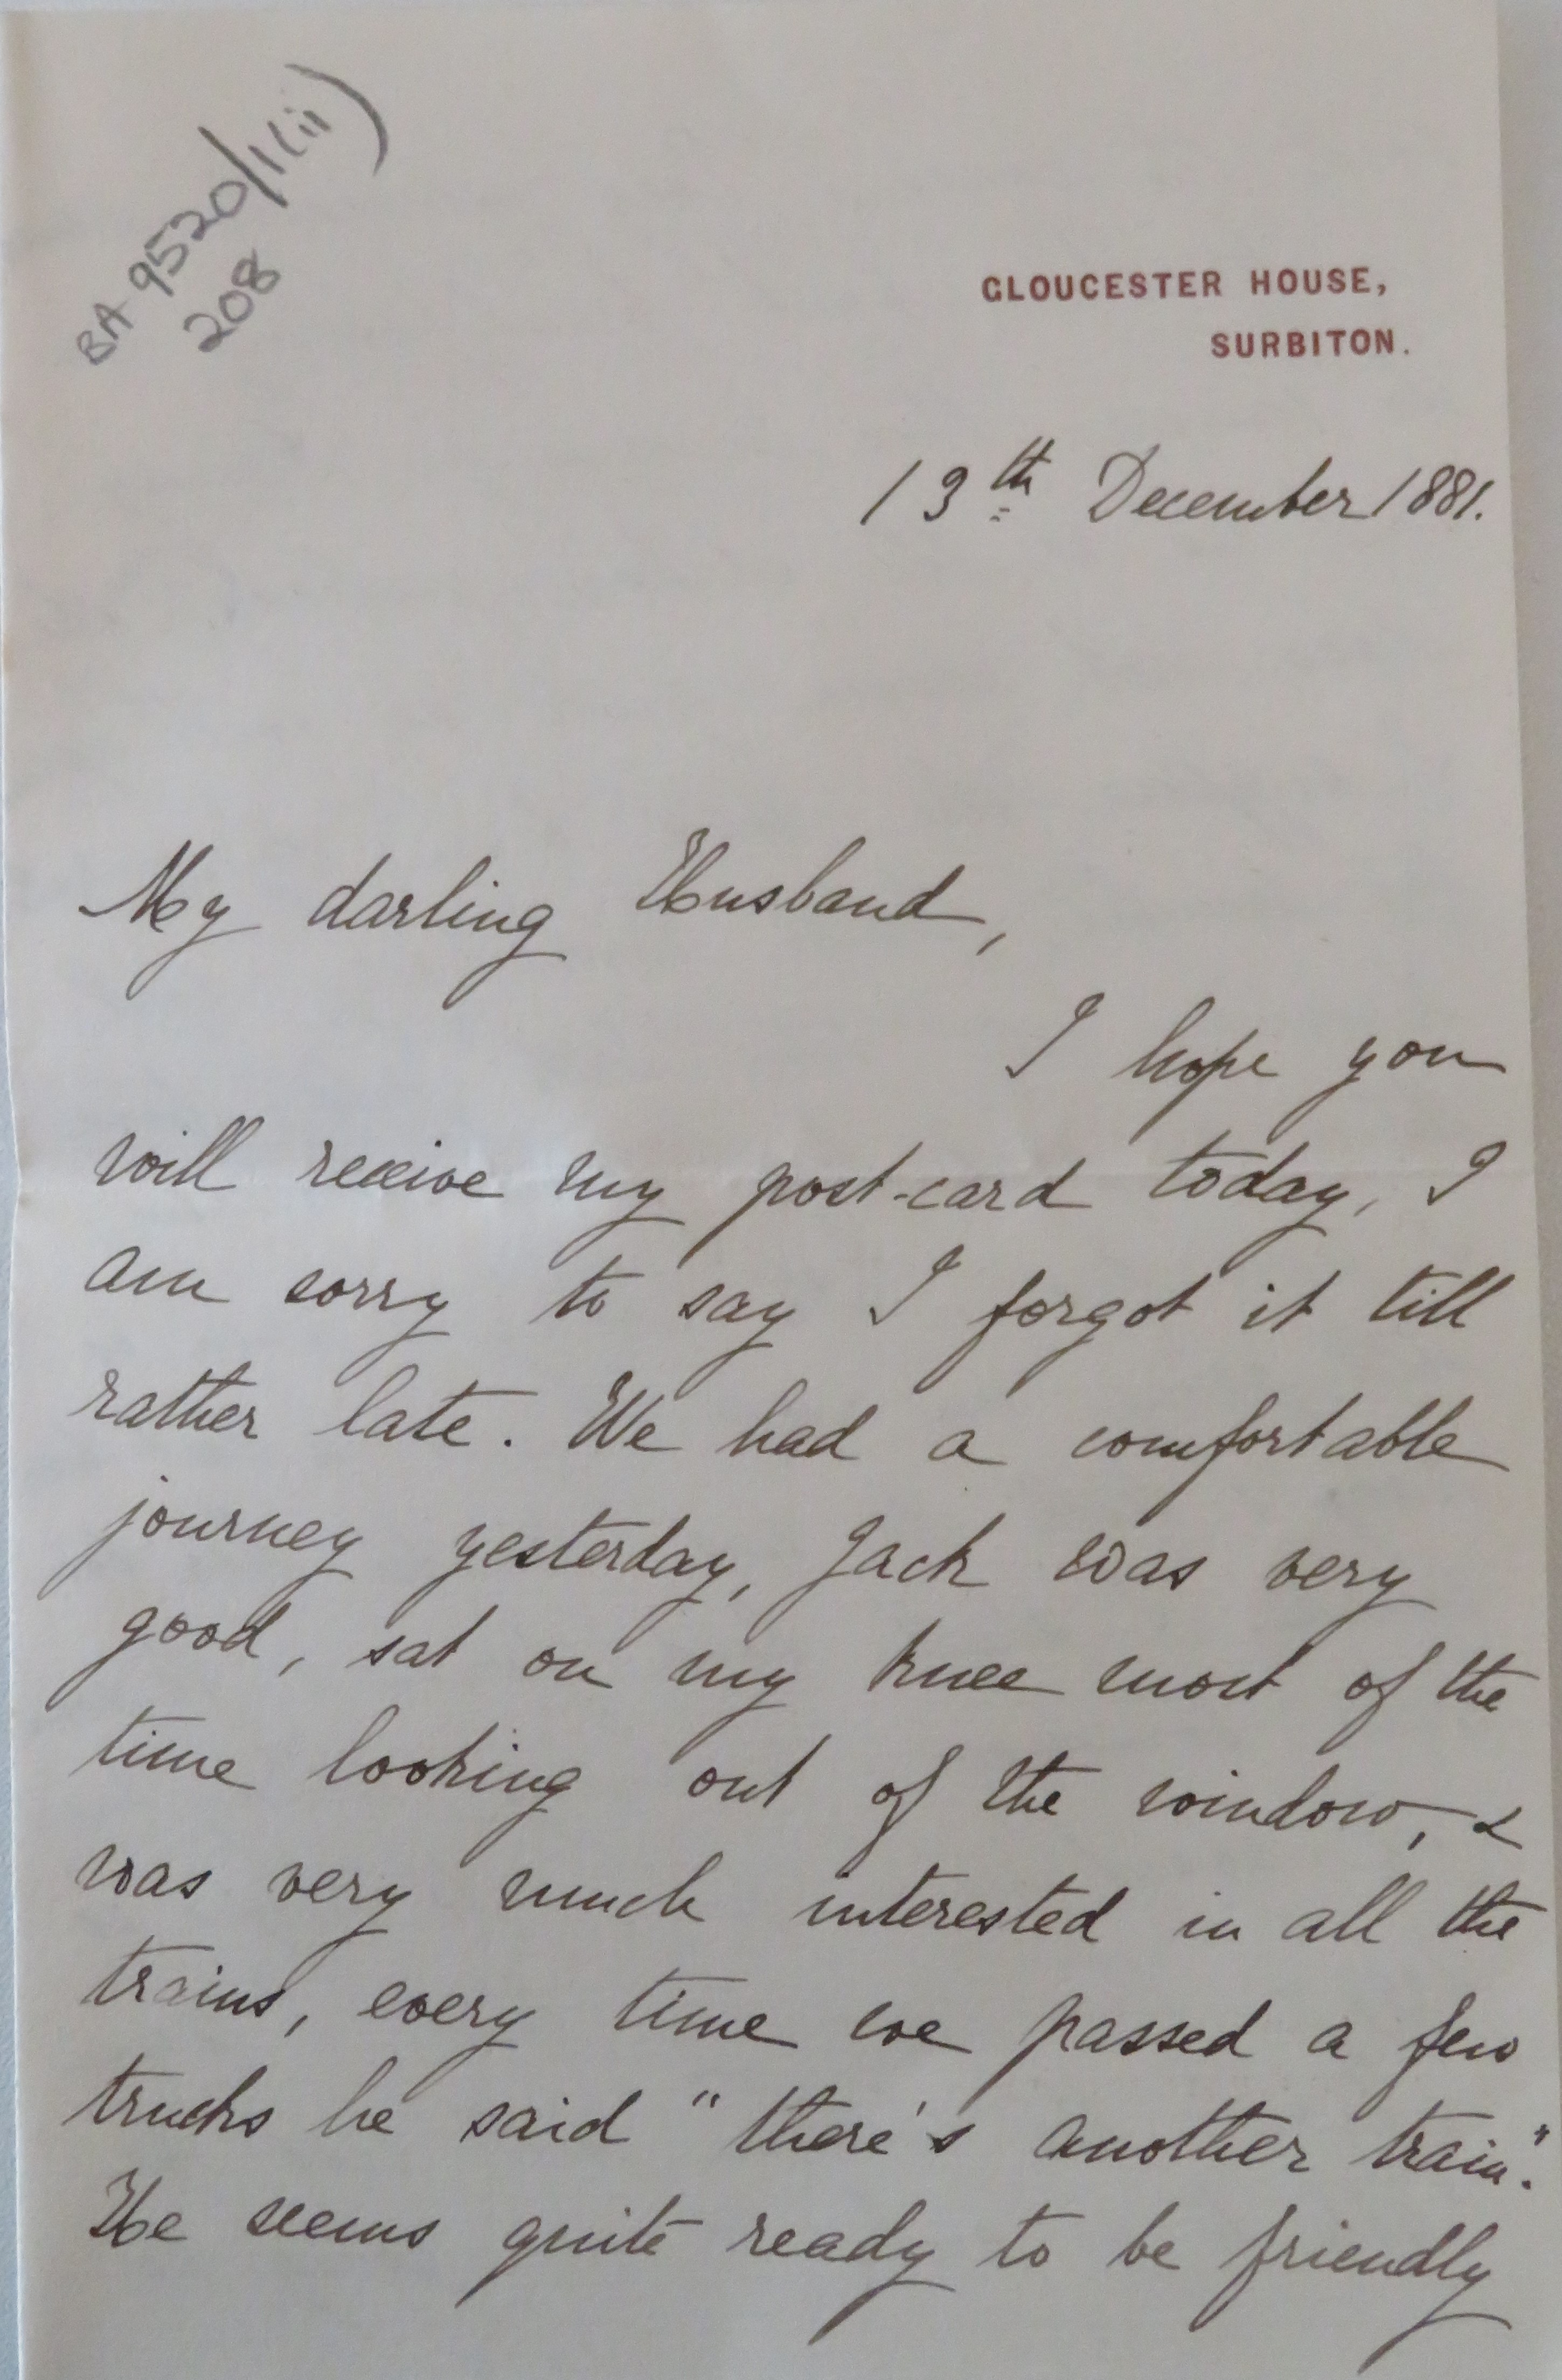 BA 9520/1(ii)
208
GLOUCESTER HOUSE,
SURBITON.
13th December 1881.
My darling Husband,
I hope you
will receive my post-card today, I
am sorry to say I forgot it till
rather late. We had a comfortable
journey yesterday, Jack was very
good, sat on my knee most of the
time looking out of the window, &
was very much interested in all the
trains, every time we passed a few
trucks he said "there's another train".
He seems quite ready to be friendly